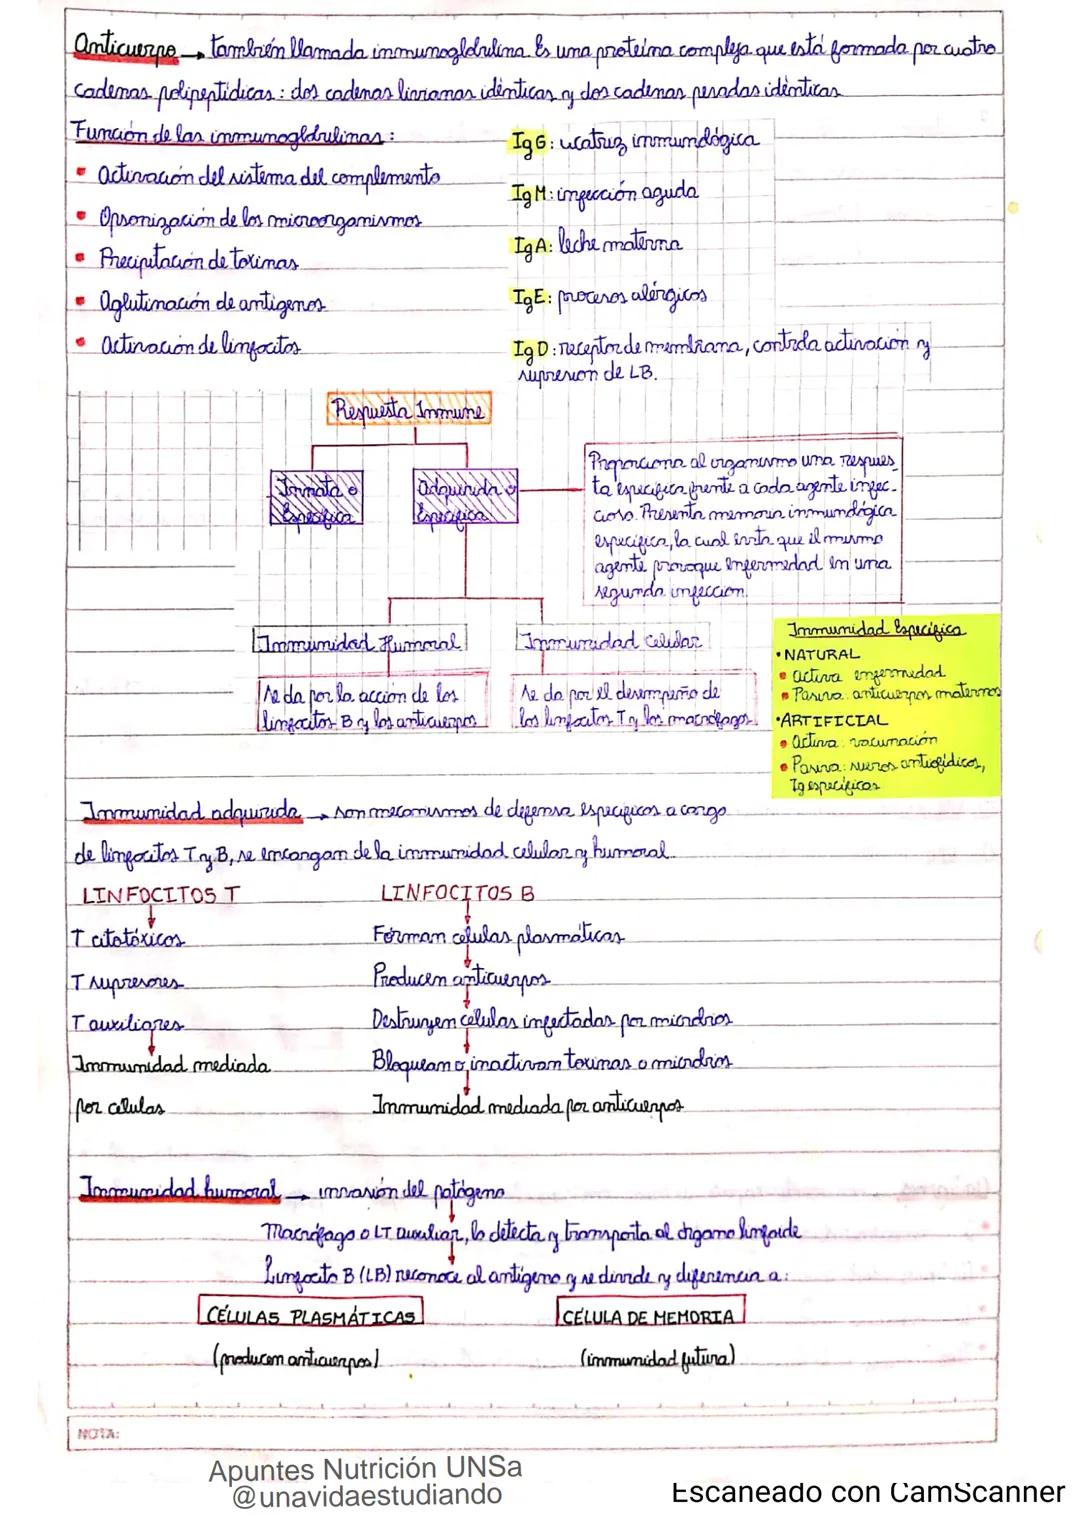 Anticuerpo → también llamada inmunoglobulina. Es una proteína compleja que está formada por cuatro
cadenas polipeptídicas: dos cadenas livianas idénticas y dos cadenas pesadas idénticas
Función de las inmunoglobulinas:
• Activación del sistema del complemento
• Opsonización de los microorganismos
• Precipitación de toxinas
• Aglutinación de antígenos
• Activación de linfocitos
IgG: cicatriz inmunológica
IgM: infección aguda
IgA: leche materna
IgE: procesos alérgicos
IgD: receptor de membrana, controla activación y
supresión de LB.
Respuesta Inmune
Innata o
Adquirida o
Específica
Proporciona al organismo una respues_
ta específica frente a cada agente infec_
cioso. Presenta memoria inmunológica
específica, la cual evita que el mismo
agente provoque enfermedad en una
segunda infección.
Inmunidad Humoral
Inmunidad celular
Se da por la acción de los
linfocitos B y los anticuerpos
Se da por el desempeño de
los linfocitos T y los macrófagos.
Inmunidad Específica
• NATURAL
• Activa enfermedad
• Pasiva: anticuerpos maternos
• ARTIFICIAL
• Activa: vacunación
• Pasiva: sueros antiofídicos,
Ig específicas
Inmunidad adquirida → son mecanismos de defensa específicos a cargo
de linfocitos T y B, se encargan de la inmunidad celular y humoral.
LINFOCITOS T
T citotóxicos
T supresores
T auxiliares
Inmunidad mediada
por células
LINFOCITOS B
Forman células plasmáticas
Producen anticuerpos
Destruyen células infectadas por microbios
Bloquean o inactivan toxinas o microbios
Inmunidad mediada por anticuerpos
Inmunidad humoral → invasión del patógeno
Macrófago o LT auxiliar, lo detecta y transporta al órgano linfoide
Linfocito B (LB) reconoce al antígeno y se divide y diferencia a:
CÉLULAS PLASMÁTICAS
CÉLULA DE MEMORIA
(producen anticuerpos)
(inmunidad futura)
NOTA:
Apuntes Nutrición UNSa
@unavidaestudiando
Escaneado con CamScanner